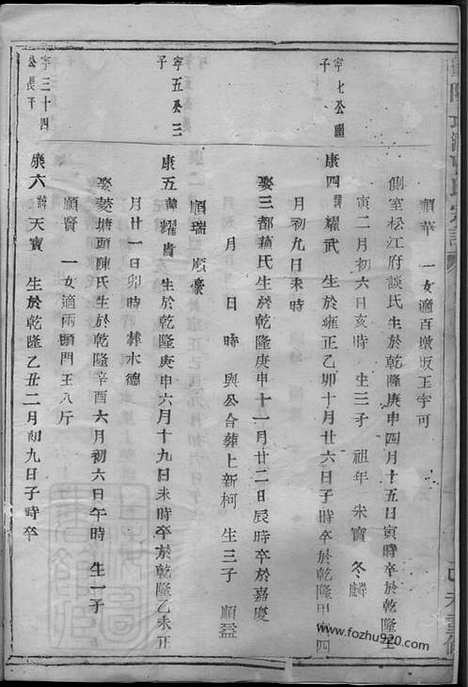 順華 一女適百墩坂王宇可
側室松江府談氏生於乾隆庚申四月十五日寅時卒於乾隆壬
寅二月初六日亥時 生三子 祖年 朱寶 冬麟
字七公
康四 諱耀武 生於雍正乙卯十月廿六日子時卒於乾隆甲 四
月初九日未時
娶三都 氏生於乾隆庚申十一月廿二日辰時卒於嘉慶
月 日 時 與公合葬上新柯 生三子 順益
順瑞 順豪
字五公三
子
康五 諱耀貴 生於乾隆庚申六月十九日未時卒於乾隆乙未正
月廿一日卯時 葬水德
娶菱塘頭陳氏生於乾隆辛酉六月初六日午時 生一子
順賢 一女適兩頭門王八斤
字三十四
公長子
康六 諱天寶 生於乾隆乙丑二月初九日子時卒
www.fozhu920.com